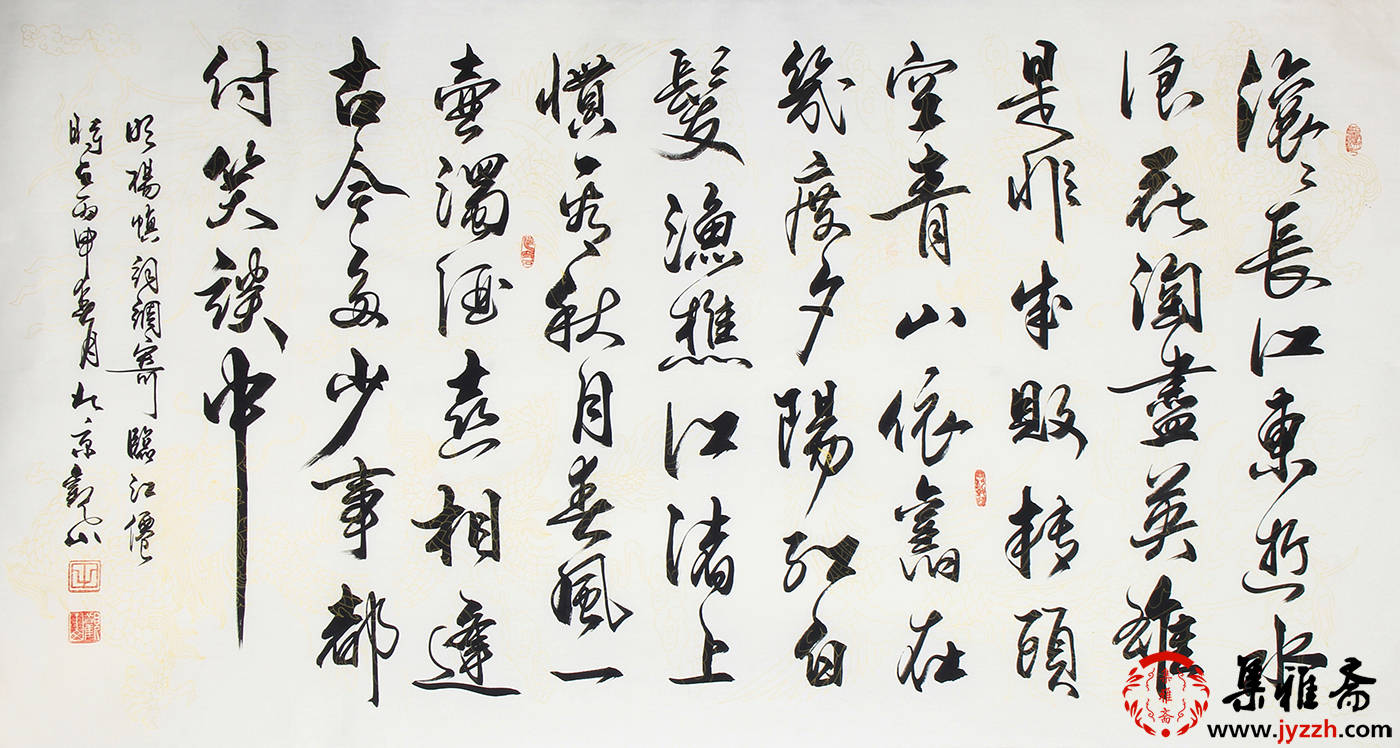 滚〻長江東逝水
浪花淘盡英雄
是非成敗轉頭
空青山依舊在
幾度夕陽紅白
髮漁樵江渚上
慣看秋月春風一
壺濁酒喜相逢
古今多少事都
付笑談中
明楊慎詞調寄臨江僊
時在丙申春月於京觀山
集雅斋
集雅斋
www.jyzzh.com